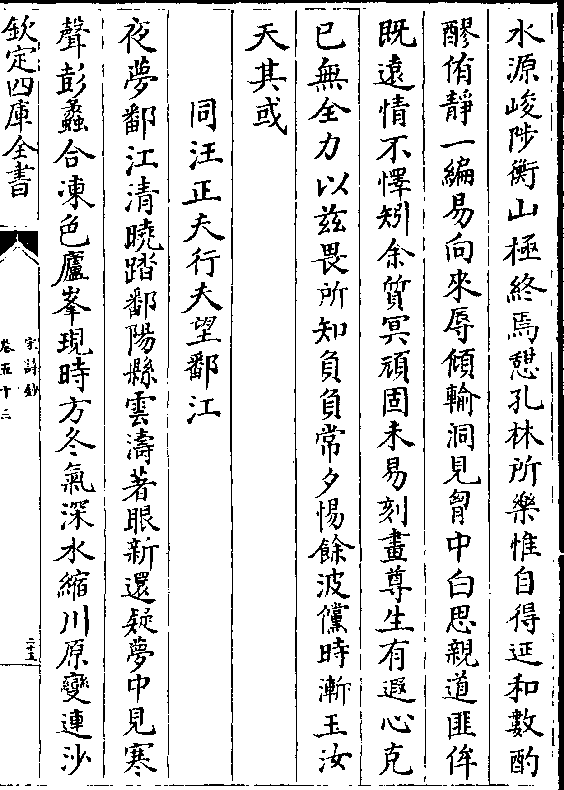 水源峻陟衡山極終焉憇孔林所樂惟自得逰和數酌
醪侑靜一編易向來辱傾輸洞見胷中白思親道匪侔
既遠情不懌矧余質冥頑固未易刻畫尊生有遐心克
已無全力以兹畏所知負負常夕惕餘波儻時漸玉汝
天其或
同汪正夫行夫望鄱江
夜夢鄱江清曉踏鄱陽縣雲濤著眼新還疑夢中見寒
聲彭蠡合凍色廬峯現時方冬氣深水縮川原變連沙
欽定四庫全書
宋詩鈔
卷五十二
二十五